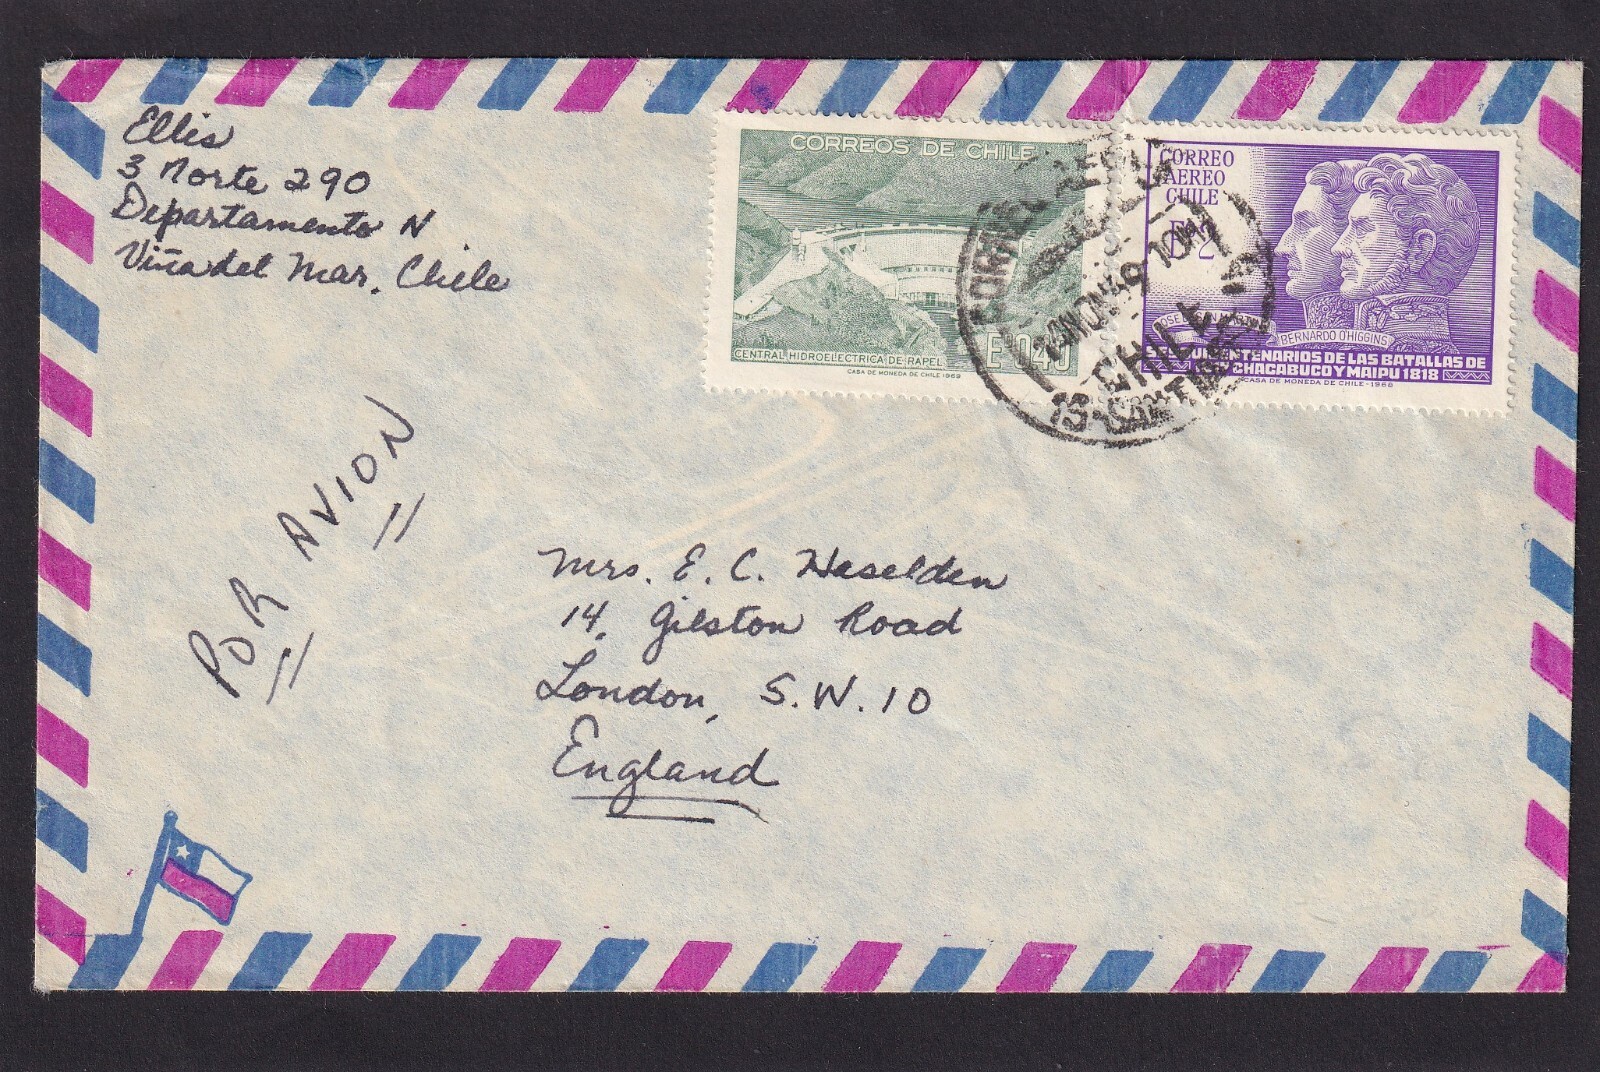 Ellis
3 Norte 290
Departamento N
Viña del Mar, Chile
CORREOS DE CHILE
CENTRAL HIDROELECTRICA DE RAPEL
E°0,40
CASA DE MONEDA DE CHILE-1969
CORREO
AEREO
CHILE
E°2
BERNARDO O'HIGGINS
DE LAS BATALLAS DE
CHACABUCO Y MAIPU 1818
CASA DE MONEDA DE CHILE-1968
CHILE
POR AVION
Mrs. E. C. Haselden
14, Gilston Road
London, S.W.10
England